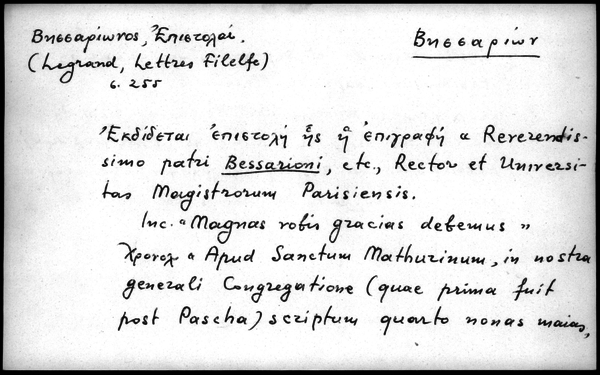 Βησσαρίωνος, Ἐπιστολαί.
Βησσαρίων
(Legrand, Lettres Filelfe)
σ. 255
Ἐκδίδεται ἐπιστολή ἧς ἡ ἐπιγραφή « Reverendis-
simo patri Bessarioni, etc., Rector et Universi-
tas Magistrorum Parisiensis.
Inc. « Magnas vobis gracias debemus »
Χρονολ « Apud Sanctum Mathurinum, in nostra
generali Congregatione (quae prima fuit
post Pascha) scriptum quarto nonas maias,